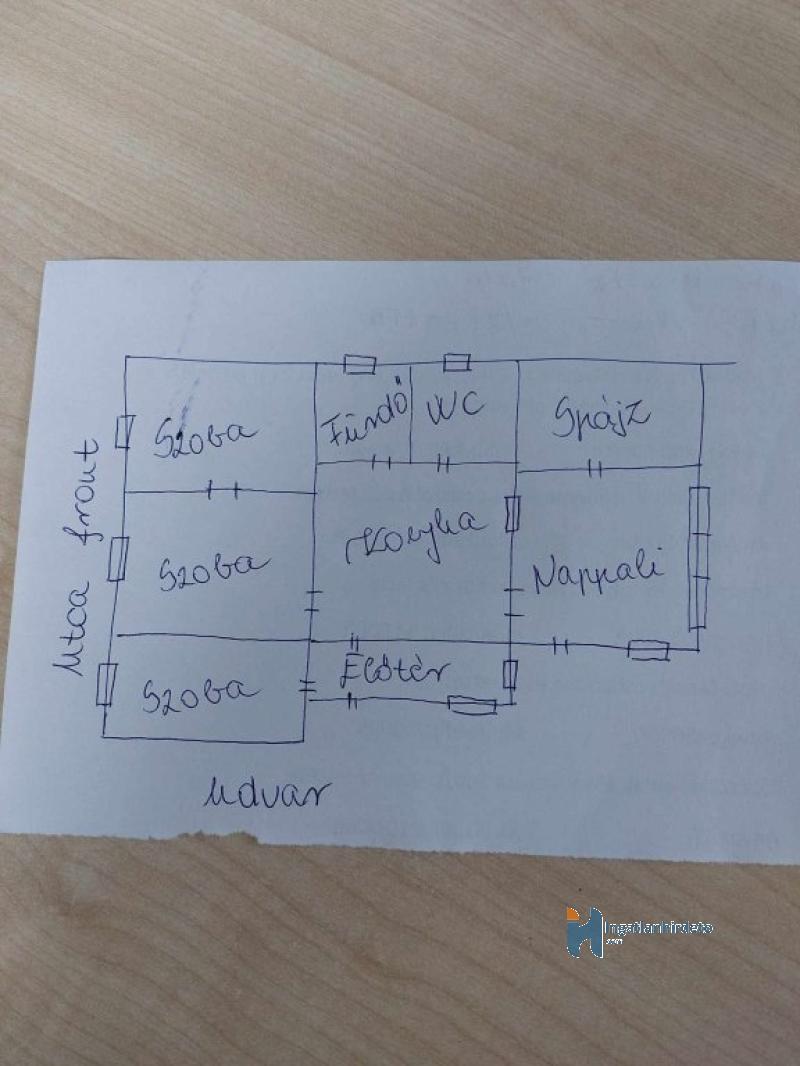 Szoba
Fürdő
WC
Spájz
Utca front
Szoba
Konyha
Nappali
Szoba
Előtér
Udvar
Ingatlanhirdeto
.com